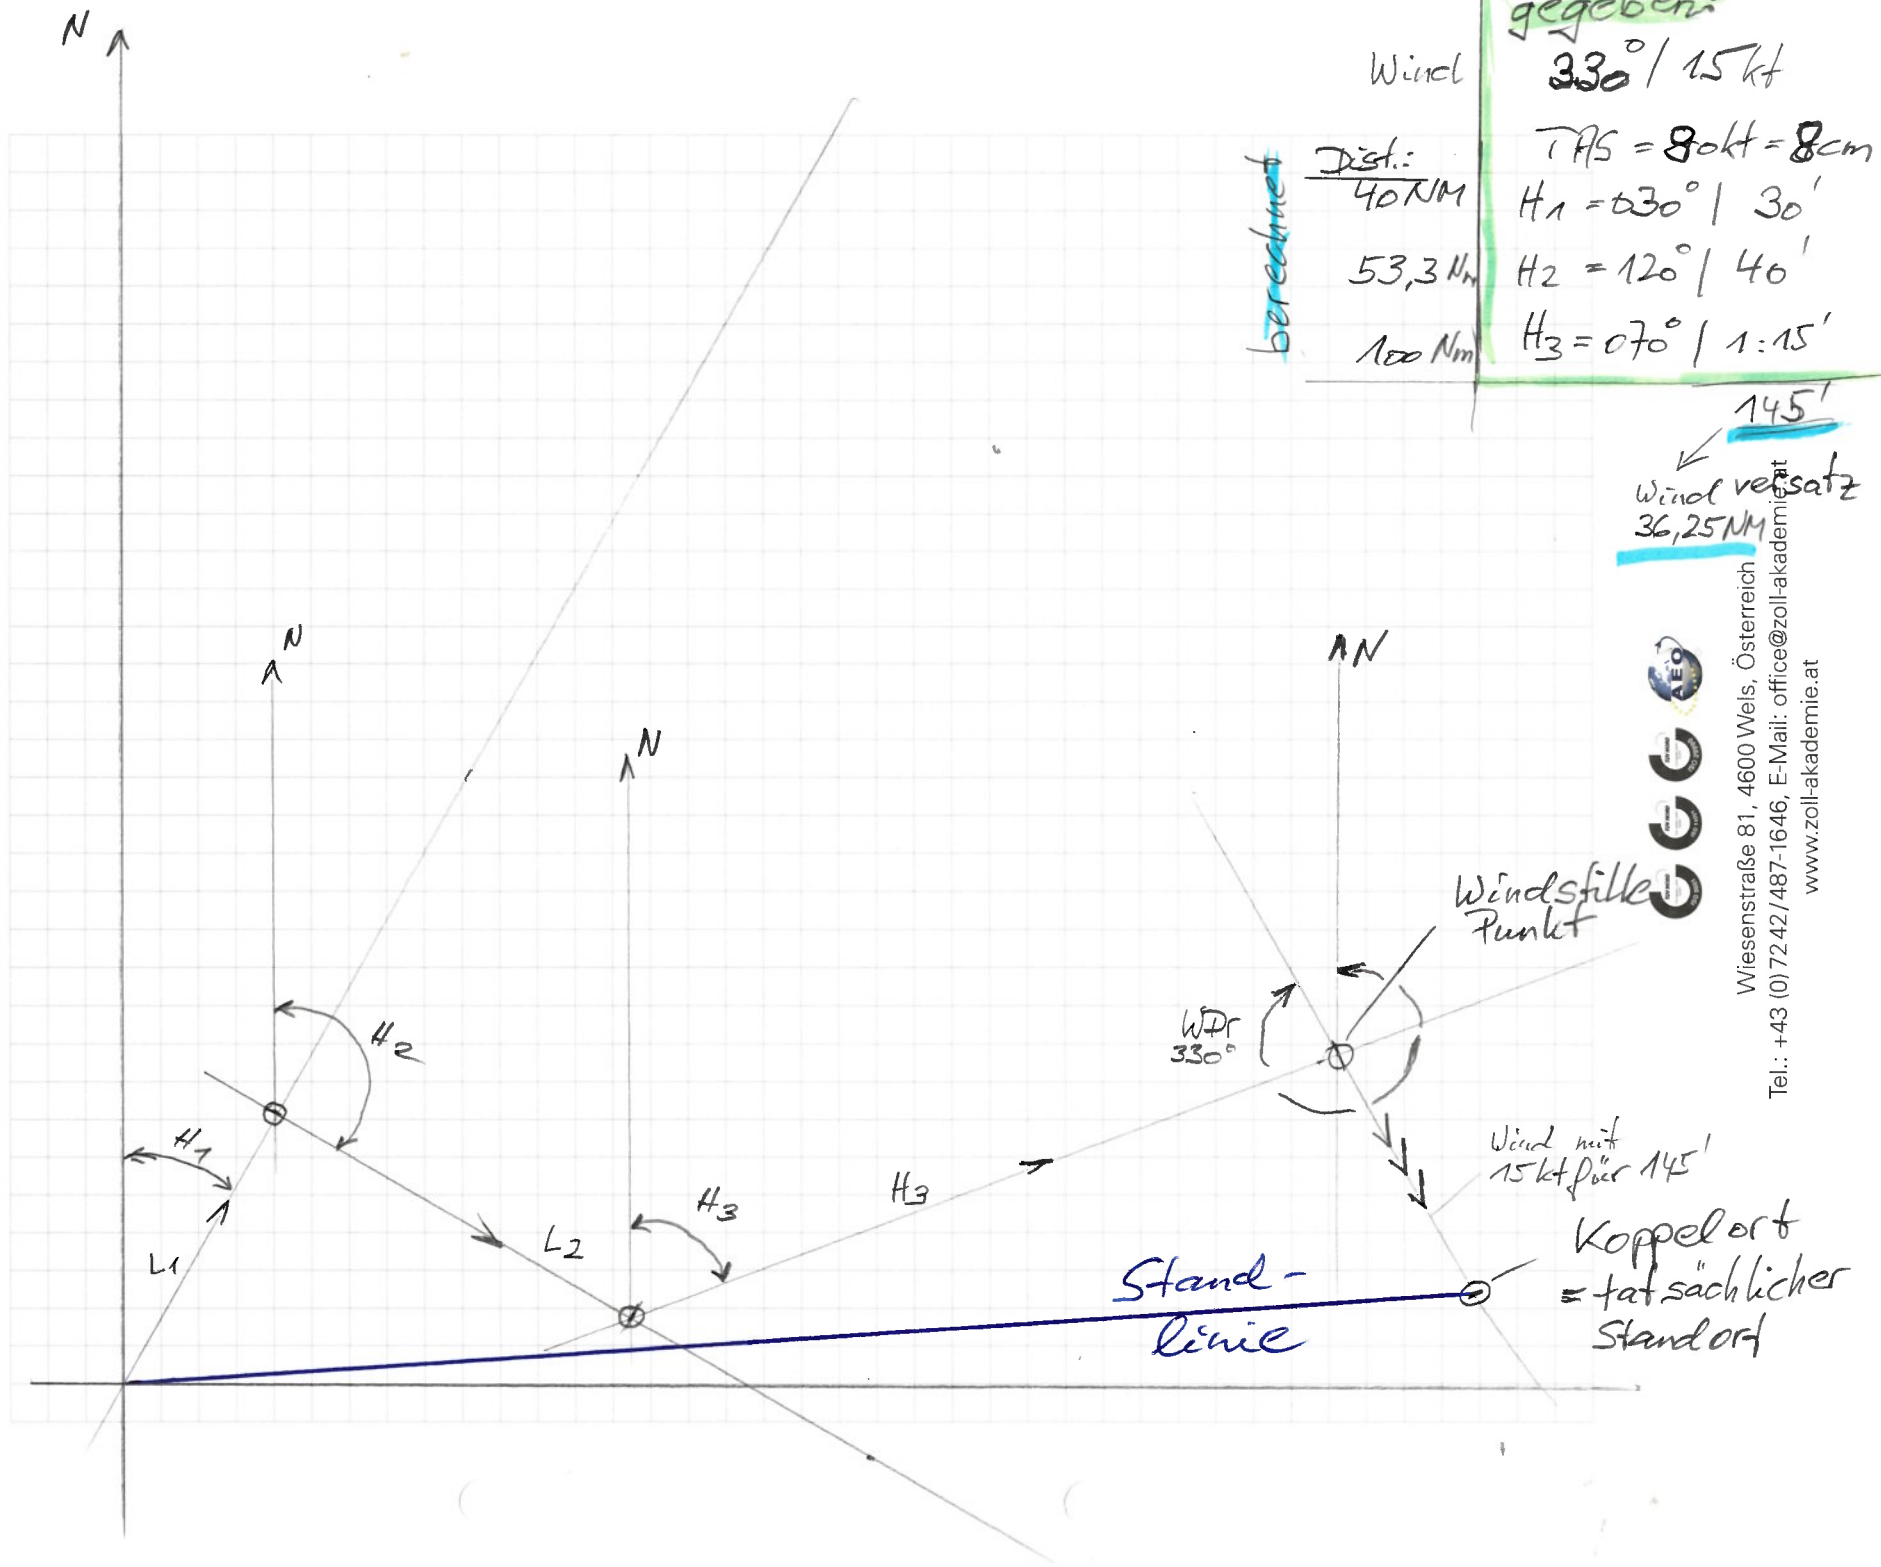 N
gegeben:
Wind 330° / 15 kt
TAS = 80kt = 8cm
berechnet
Dist.:
40 NM H1 = 030° / 30'
53,3 Nm H2 = 120° / 40'
100 Nm H3 = 070° / 1:15'
145'
Wind versatz
36,25 NM
Wiesenstraße 81, 4600 Wels, Österreich
Tel.: +43 (0)7242/487-1646, E-Mail: office@zoll-akademie.at
www.zoll-akademie.at
AEO
N
N
N
Windstille
Punkt
H2
WDr
330°
H1
Wind mit
15kt für 145'
H3
H3
L2
L1
Koppelort
= tatsächlicher
Standort
Stand-
linie